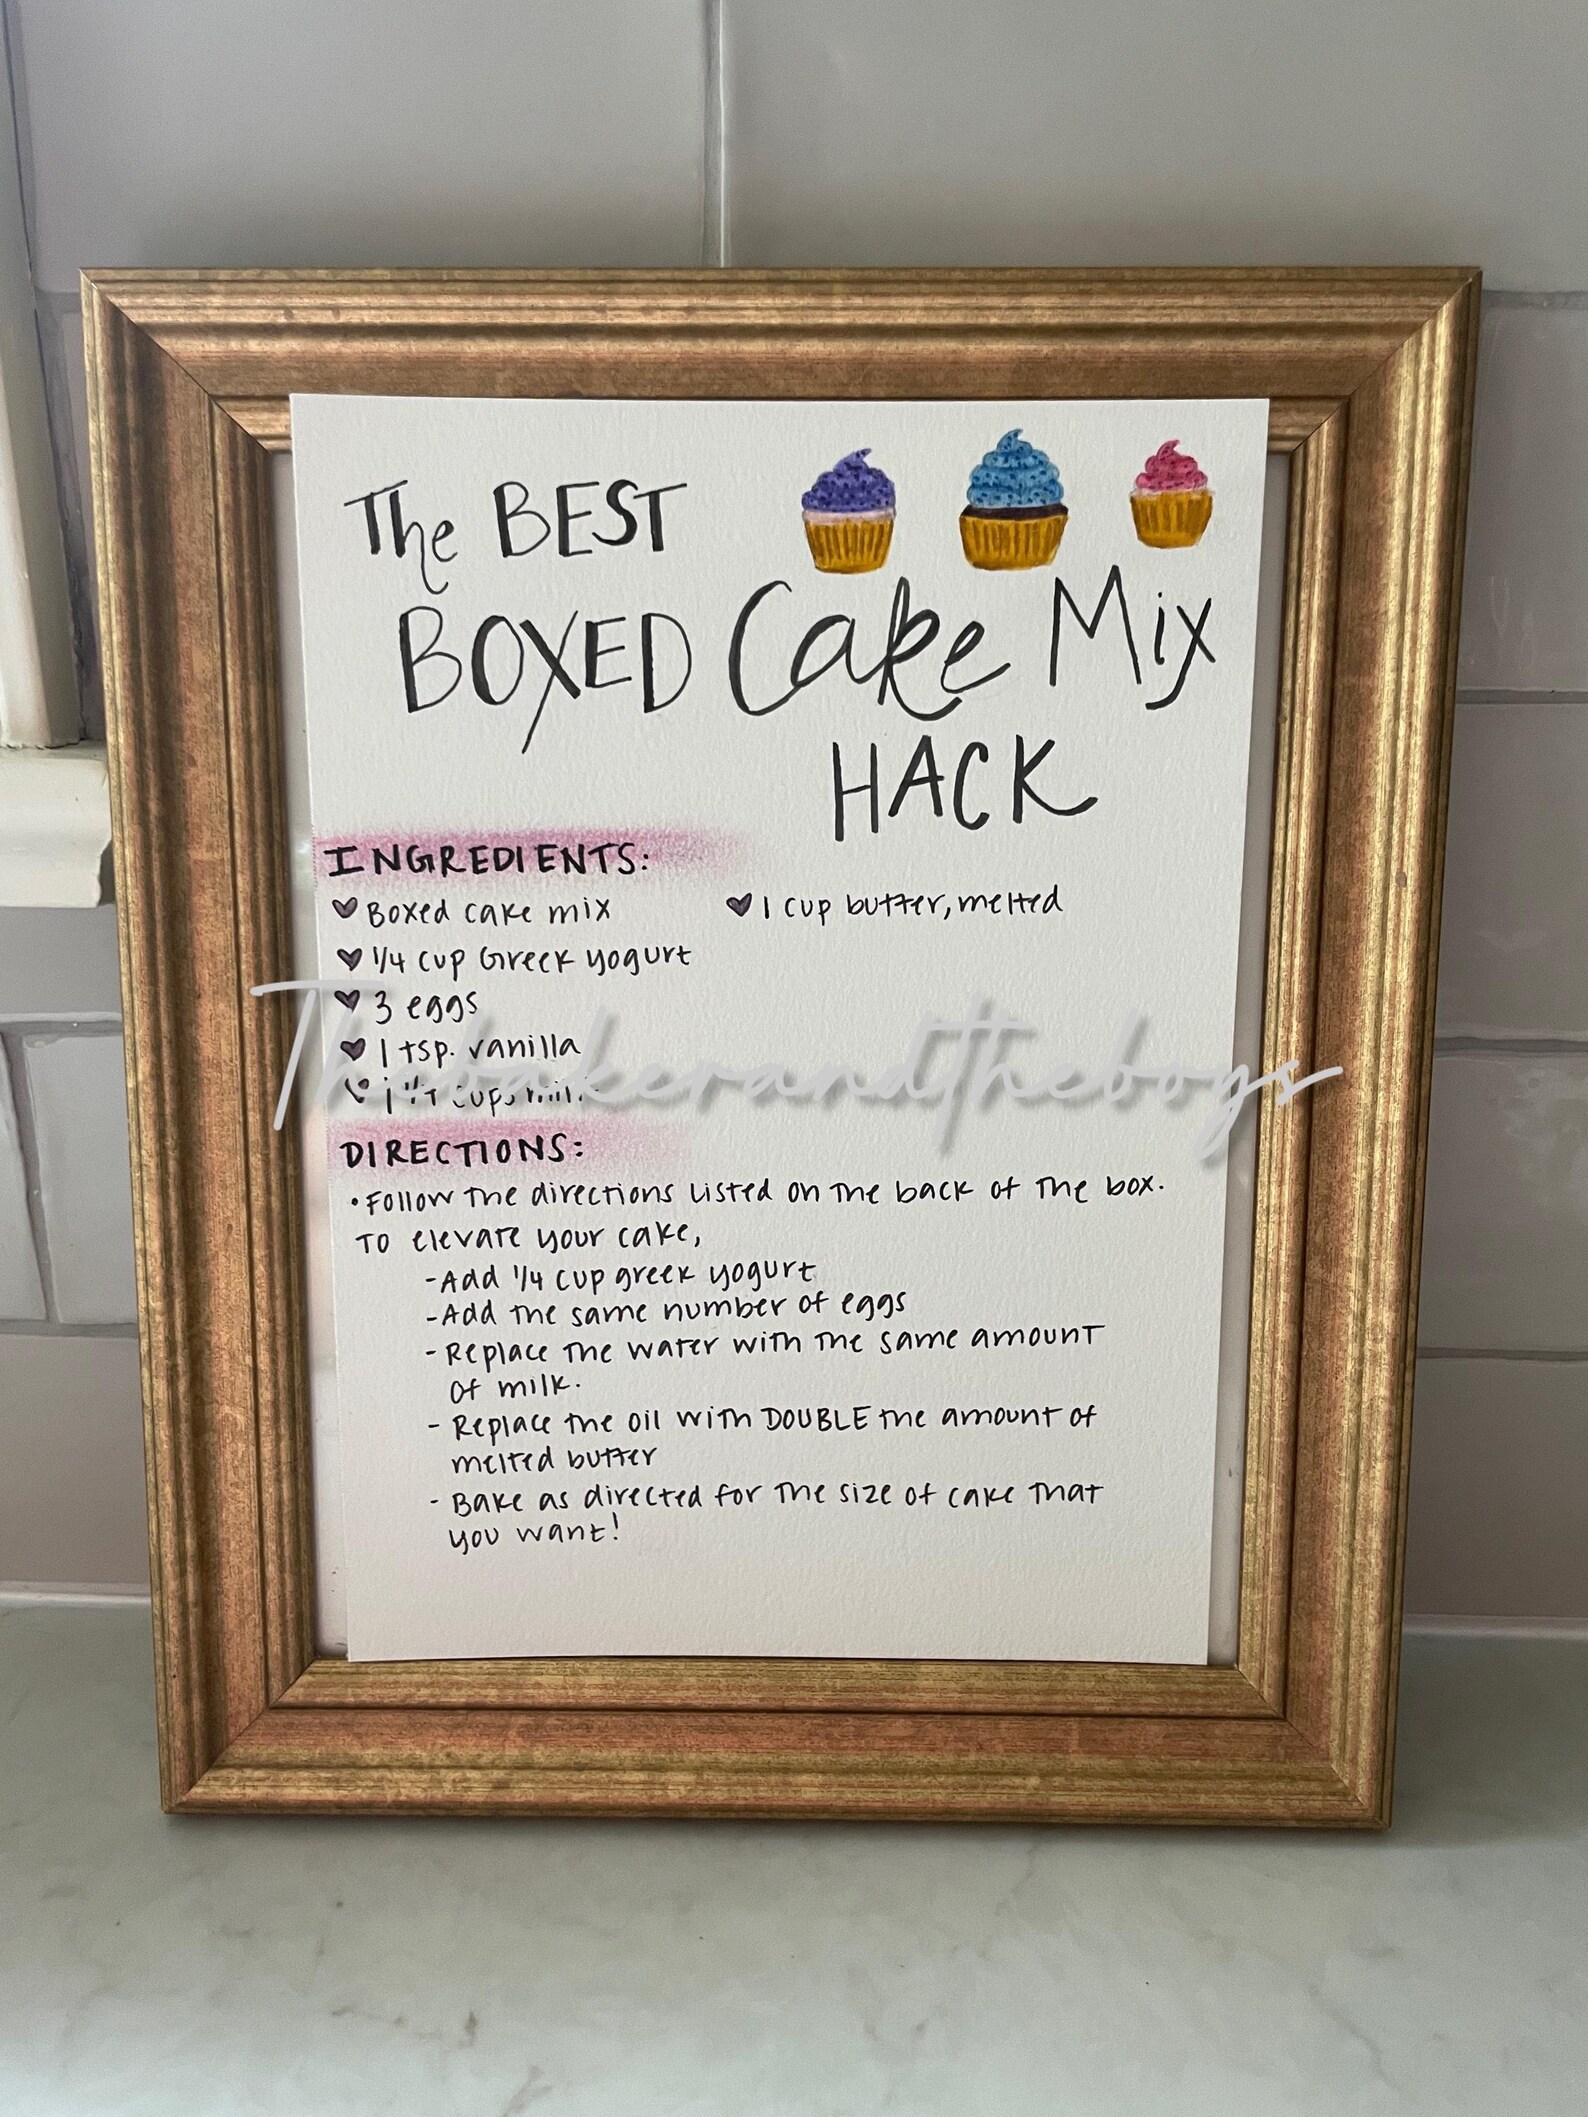 The BEST
BOXED Cake Mix
HACK
INGREDIENTS:
Boxed cake mix
1/4 cup Greek yogurt
3 eggs
1 tsp. vanilla
1 1/4 cups milk
1 cup butter, melted
Thebakerandtheboys
DIRECTIONS:
• Follow the directions listed on the back of the box.
To elevate your cake,
- Add 1/4 cup greek yogurt
- Add the same number of eggs
- Replace the water with the same amount
of milk.
- Replace the oil with DOUBLE the amount of
melted butter
- Bake as directed for the size of cake that
you want!